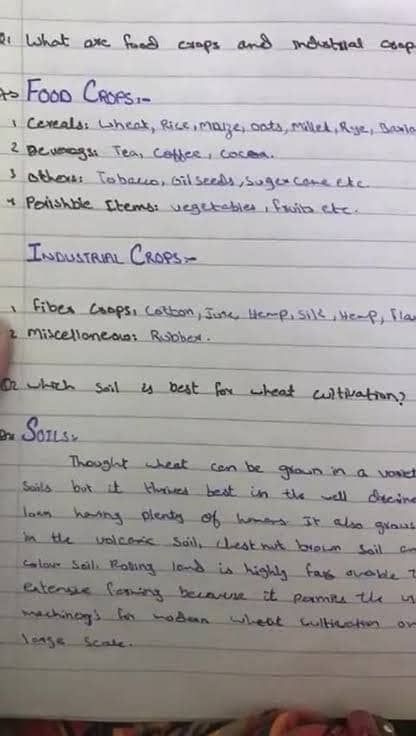 Q1 What are food crops and industrial crop
FOOD CROPS:-
1 Cereals: Wheat, Rice, Maize, Oats, Millet, Rye, Barle
2 Beverages: Tea, Coffee, Cocoa.
3 Others: Tobacco, Oilseeds, Sugercane etc.
4 Perishble Items: vegetables, fruits etc.
INDUSTRIAL CROPS:-
1 Fiber Crops: Cotton, Jute, Hemp, Silk, Hemp, Fla
2 Miscellaneous: Rubber.
Q2 which soil is best for wheat cultivation?
Ans SOILS:-
Thought wheat can be grown in a variet
soils but it thrives best in the well
loam having plenty of It also grows
in the volcanic soil, chestnut brown soil
colour soil. land is highly
extensive farming because it the
for modern wheat cultivation on
large scale.